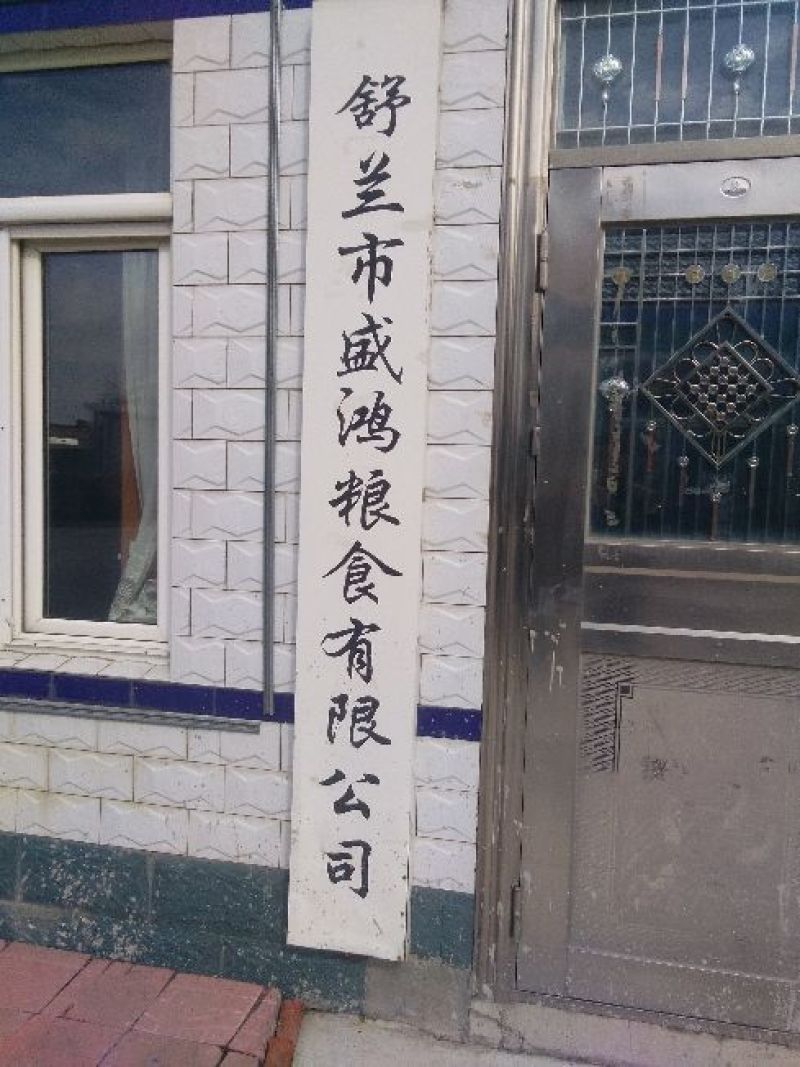 舒兰市盛鸿粮食有限公司